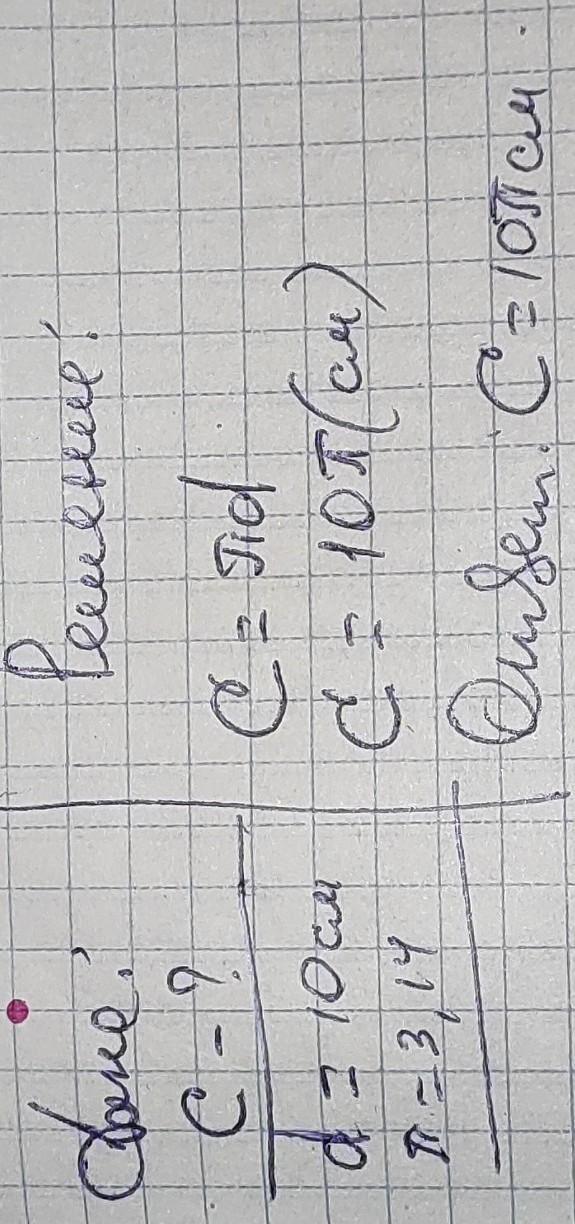 Дано:
С - ?
d = 10 см
π = 3,14
Решение:
С = πd
С = 10π (см)
Ответ: С = 10π см.